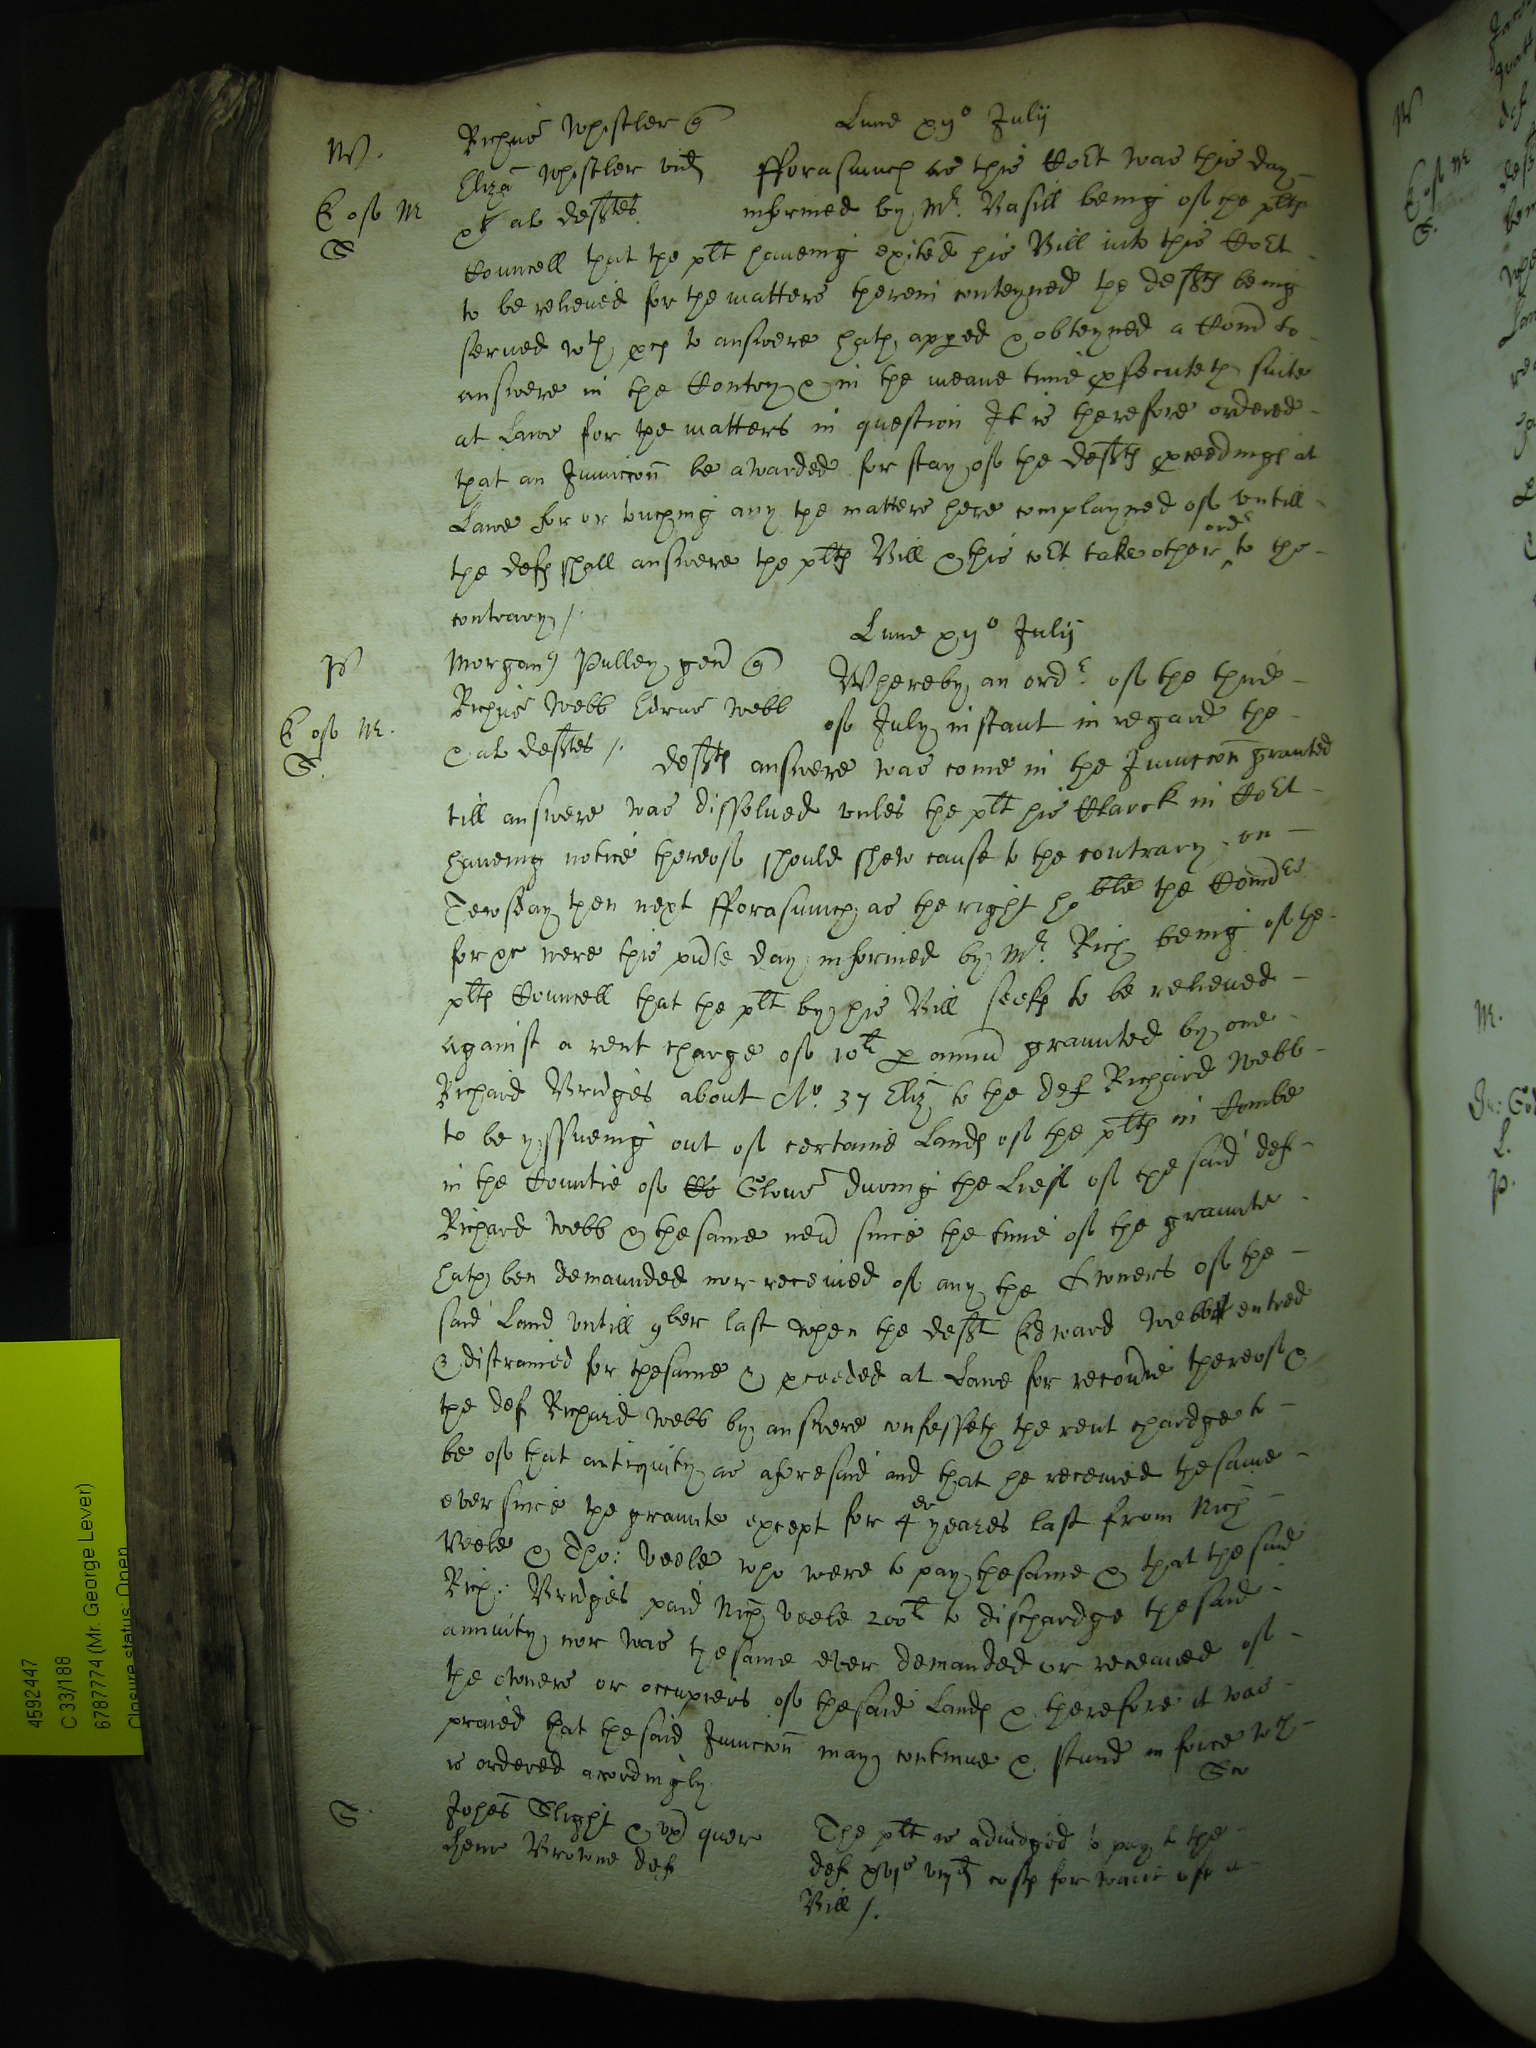 W.
Richus Whistler q
Lune xijº Julij
Eliza Whistler vid
fforasmuch as this Co:rt was this day
E of M
& al defts
informed by Mr. Vasill being of the plts
S
Councell that the plt haveing exited his Bill into this Co:rt
to be relieved for the matters therein conteyned the defts being
served wth to answere hath appeed & obteyned a Comd to
answere in the Contry & in the meane time psecuteth suite
at Lawe for the matters in question It is therefore ordered
that an Iniuccon be awarded for stay of the defts pceedings at
Lawe for or touching any the matters here complayned of untill
the defts shall answere the plts Bill & this cort take other ordr to the
contrary /.
Lune xijº Julij
P
Morgans Pulley gen q
Whereby an ordr. of the third
Richus Webb Edrus Webb
of July instant in regard the
E of M.
S.
& al deftes /.
defts answere was come in the Iniuccon graunted
till answere was dissolved unles the plt his Clarck in Co:rt
haveing notice thereof should shew cause to the contrary on
Tewsday then next fforasmuch as the right ho:ble the Comdrs
for &c were this pnte day informed by Mr. Rich being of the
plts Councell that the plt by his Bill seeks to be relieved
against a rent charge of 10li p annu graunted by one
Richard Bridges about Ao. 37 Eliz to the def Richard Webb
to be yssueing out of certaine Lands of the plts in Combe
in the Countie of Co Glouc during the Liefe of the said def
Richard Webb & the same nev since the time of the graunte
hath ben demaunded nor received of any the Owners of the
said Land untill 9ber last when the deft Edward Webb entred
& distrained for the same & pceeded at Lawe for recovie thereof &
the def Richard Webb by answere confesseth the rent chardge to
be of that antiquity as aforesaid and that he received the same
ever since the graunte except for 4er yeares last from Nich
Veele & Tho: Veele who were to pay the same & that the said
Rich: Bridges paid Nich Veele 200li to dischardge the said
annuity nor was the same ever demanded or received of
the owners or occupiers of the said Lands & therefore it was
praied that the said Iniuccon may continue & stand in force wch
is ordered acordingly
S.
Johes Slight & ux quer
The plt is adiudged to pay to the
Browne def
def costs for want of a
Bill /.
4592447
C 33/188
6787774 (Mr. George Lever)
Closure status: Open